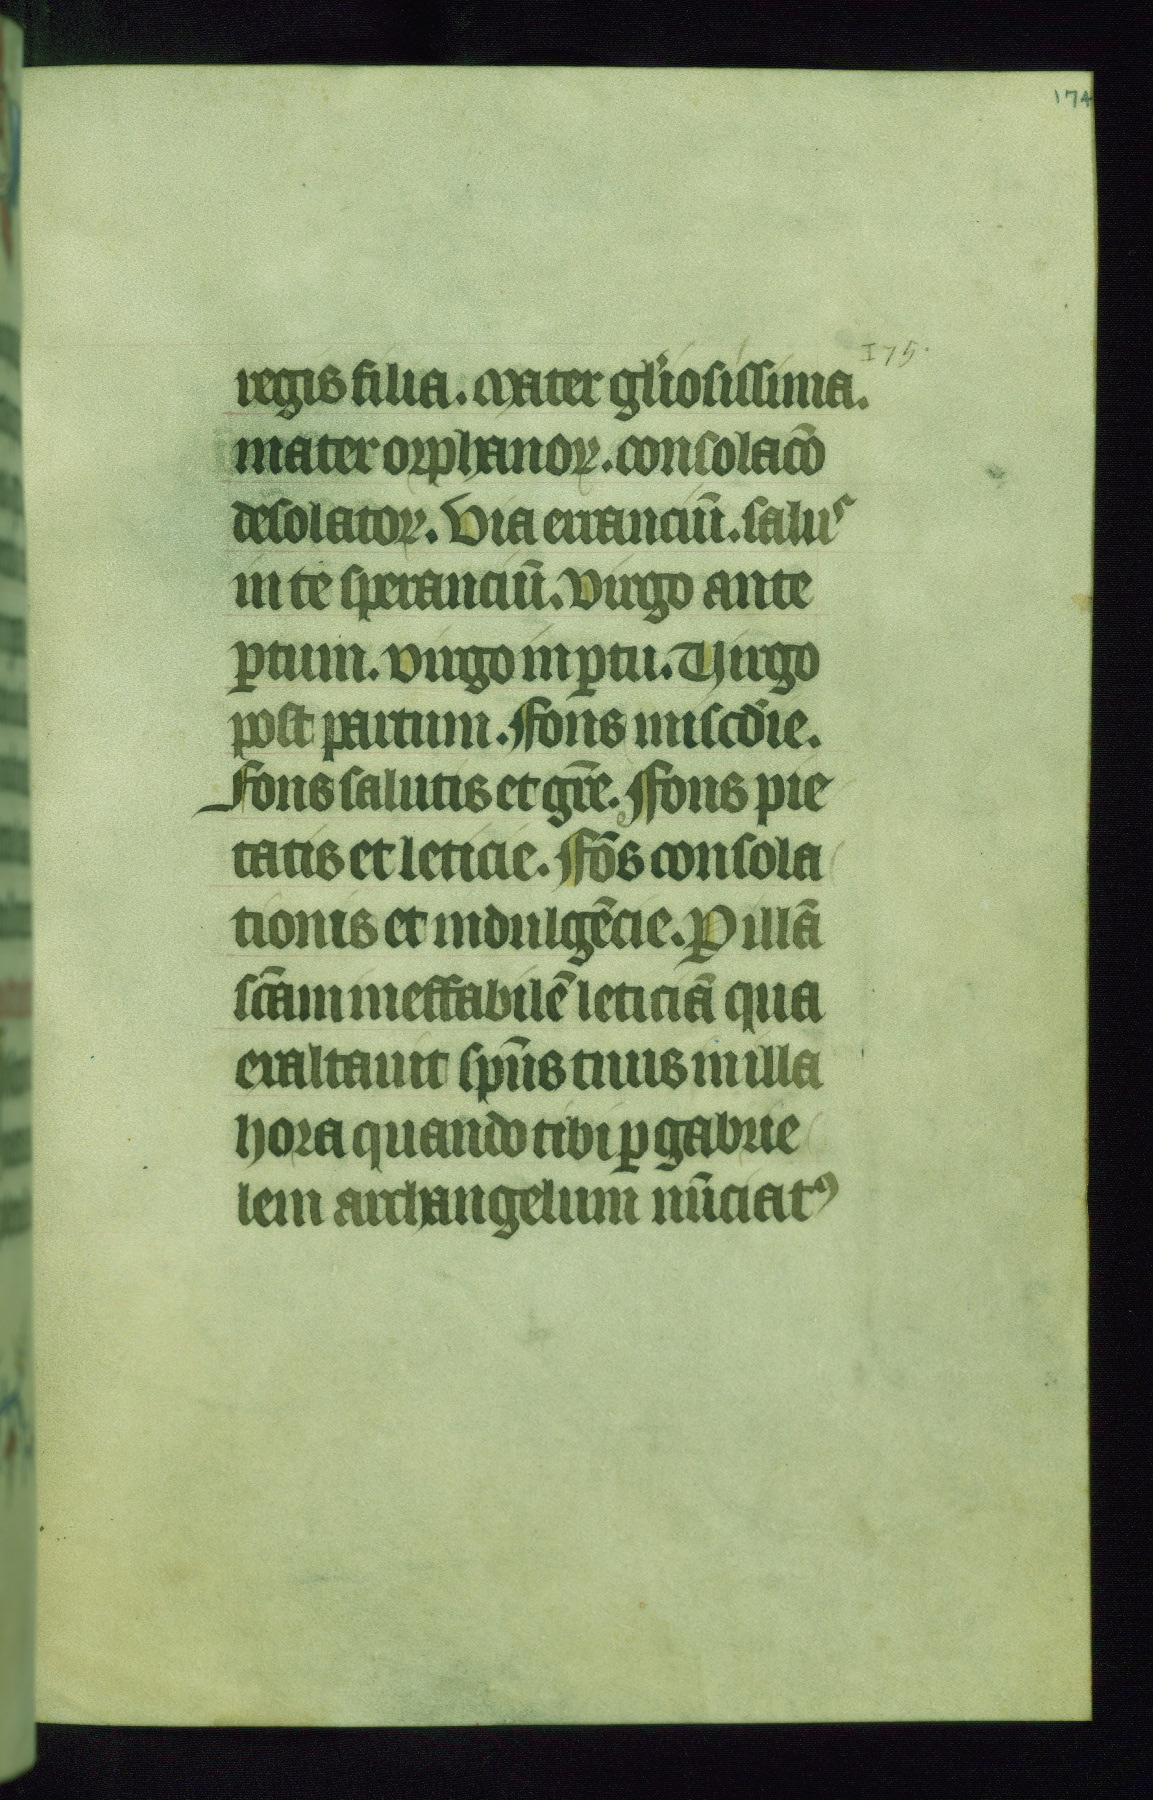 174
175.
regis filia. Mater gl'iosissima.
mater orphanoꝝ. consolacō
desolatoꝝ. Via erranciū. salus
in te speranciū. Virgo ante
ꝑtum. virgo in ꝑtu. Virgo
post partum. ffons miscd'ie.
ffons salutis et gr̄e. ffons pie
tatis et leticie. ffōs consola
tionis et indulgēcie. Ꝑ illā
sc̄am ineffabilē leticiā qua
exaltauit sp̄us tuus in illa
hora quando tibi ꝑ gabrie
lem archangelum nūciatꝰ